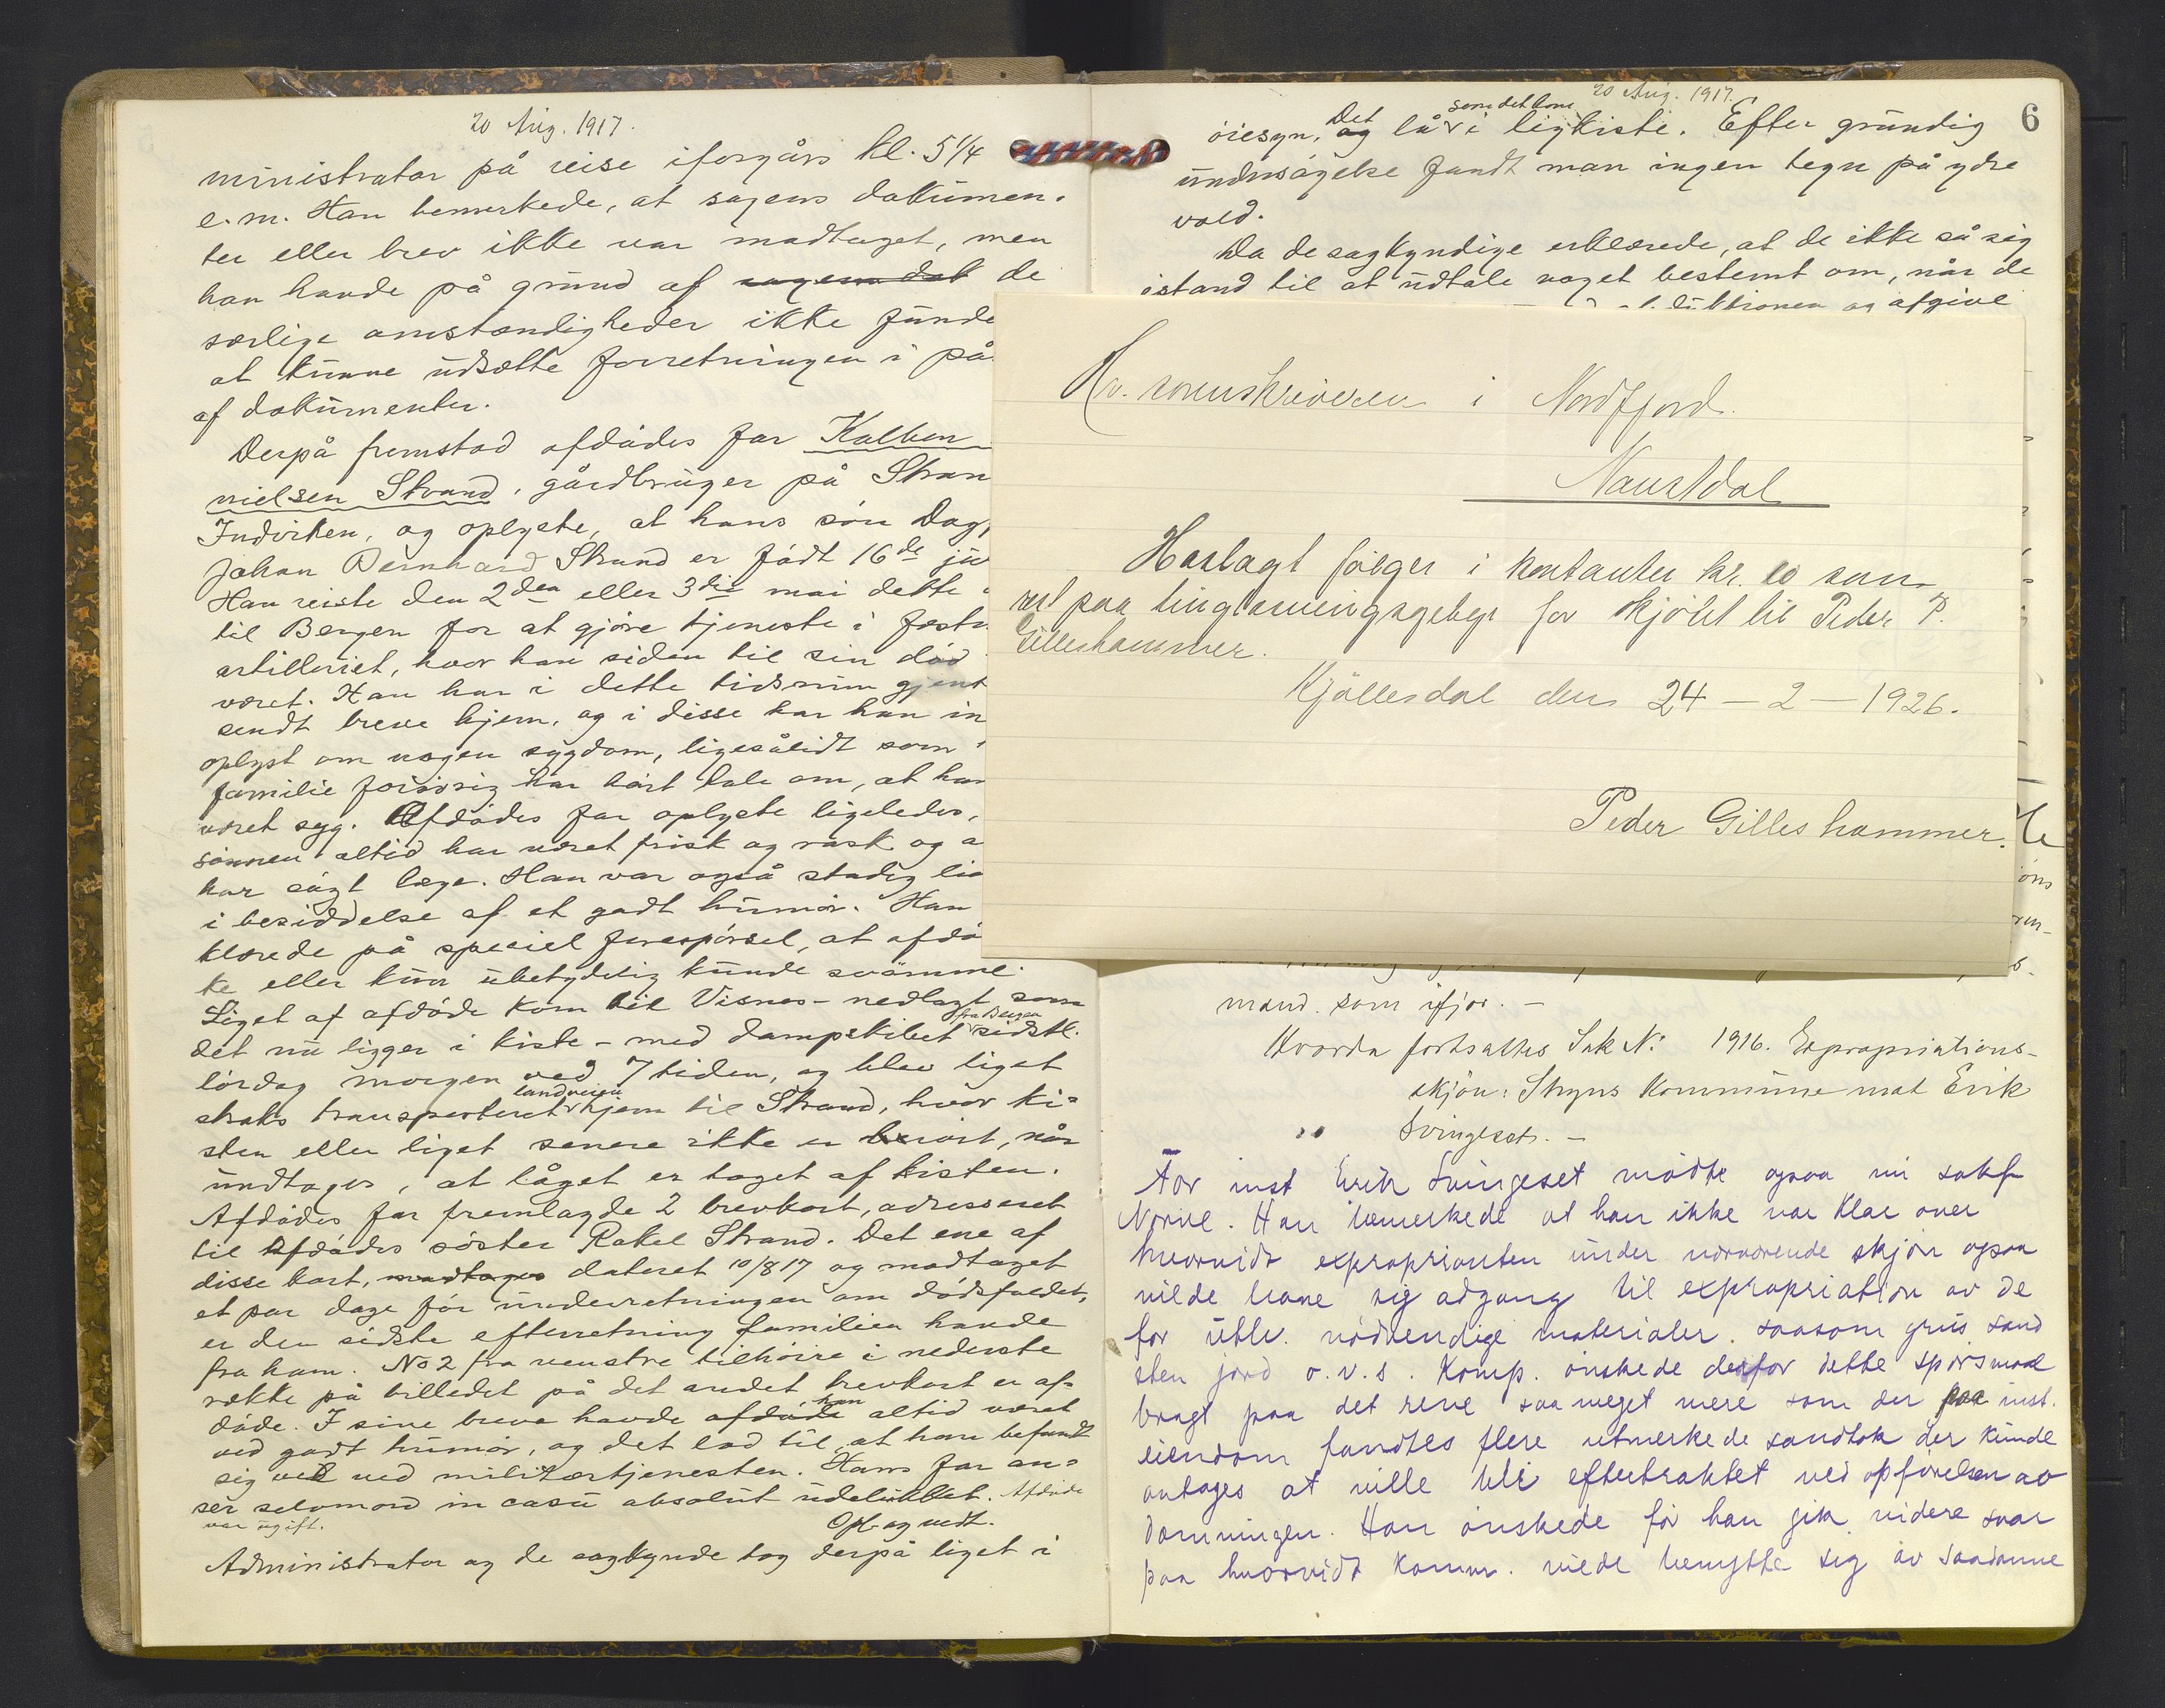 20 Aug. 1917.
ministrator på reise iforgårs kl. 5 1/4
e.m. Han bemerkede, at sagens dokumen-
ter eller brev ikke var modtaget, men
han havde på grund af de
særlige omstændigheder ikke funde
at kunne udsætte forretningen i på
af dokumenter.
Derpå fremstod afdødes far Kolben
nielsen Strand, gårdbruger på Stran
Indviken, og oplyste, at hans søn Dag
Johan Bernhard Strand er født 16de ju
Han reiste den 2den eller 3die mai dette
til Bergen for at gjøre tjeneste i fæstn
artilleriet, hvor han siden til sin død
været. Han har i dette tidsrum gjent
sendt breve hjem, og i disse har han in
oplyst om nogen sygdom, ligesålidt som
familie forøvrig har hørt tale om, at han
været syg. Afdødes far oplyste ligeledes,
sønnen altid har været frisk og rask og a
har søgt læge. Han var også stadig
i besiddelse af et godt humør. Han
klærede på speciel forespørsel, at afdø
ke eller kun ubetydelig kunde svømme.
Liget af afdøde kom til Visnes - nedlagt som
det nu ligger i kiste - med dampskibet fra Bergen sidstl.
lørdag morgen ved 7 tiden, og blev liget
straks transporteret landveien hjem til Strand, hvor ki-
sten eller liget senere ikke er berørt, når
undtages, at låget er taget af kisten.
Afdødes far fremlagde 2 brevkort, adresseret
til Afdødes søster Rakel Strand. Det ene af
disse kort, modtages dateret 10/8 17 og modtaget
et par dage før underretningen om dødsfaldet,
er den sidste efterretning familien havde
fra ham. No 2 fra venstre tilhøire i nederste
række på billedet på det andet brevkort er af-
døde. I sine breve havde afdøde han altid været
ved godt humør, og det lod til, at han befandt
sig vel ved militærtjenesten. Hans far an-
ser selvmord in casu absolut udelukket. Afdøde
var ugift.
Opl. og vedt.
Administrator og de sagkynde tog derpå liget i
20 Aug. 1917.
6
øiesyn. Det og lå som det kom i ligkiste. Efter grundig
undersøgelse fandt man ingen tegn på ydre
vold.
Da de sagkyndige erklærede, at de ikke så sig
istand til at udtale noget bestemt om, når de
og afgive
Hr. sorenskriveren i Nordfjord.
Naustdal
Hoslagt følger i kontanter kr. 10 som
rest paa tinglæsningsgebyr for skjøtet til Peder P.
Gilleshammer.
Kjøllesdal den 24 - 2 - 1926.
Peder Gilleshammer.
mand som ifjor. -
Hvorda fortsattes Sak No 1916. Expropriations-
skjøn: Stryns kommune mot Erik
Svingeset. -
For inst Erik Svingeset mødte ogsaa nu sakf
Norvel. Han bemerkede at han ikke var klar over
hvorvidt exproprianten under nærværende skjøn ogsaa
vilde have sig adgang til expropriation av de
for utbv. nødvendige materialer. saasom grus sand
sten jord o.v.s. Komp. ønskede derfor dette spørsmaal
bragt paa det rene saa meget mere som der paa inst.
eiendom fandtes flere utmerkede sandtak der kunde
antages at ville bli eftertraktet ved opførelsen av
damningen. Han ønskede før han gik videre svar
paa hvorvidt komm. vilde benytte sig av saadanne